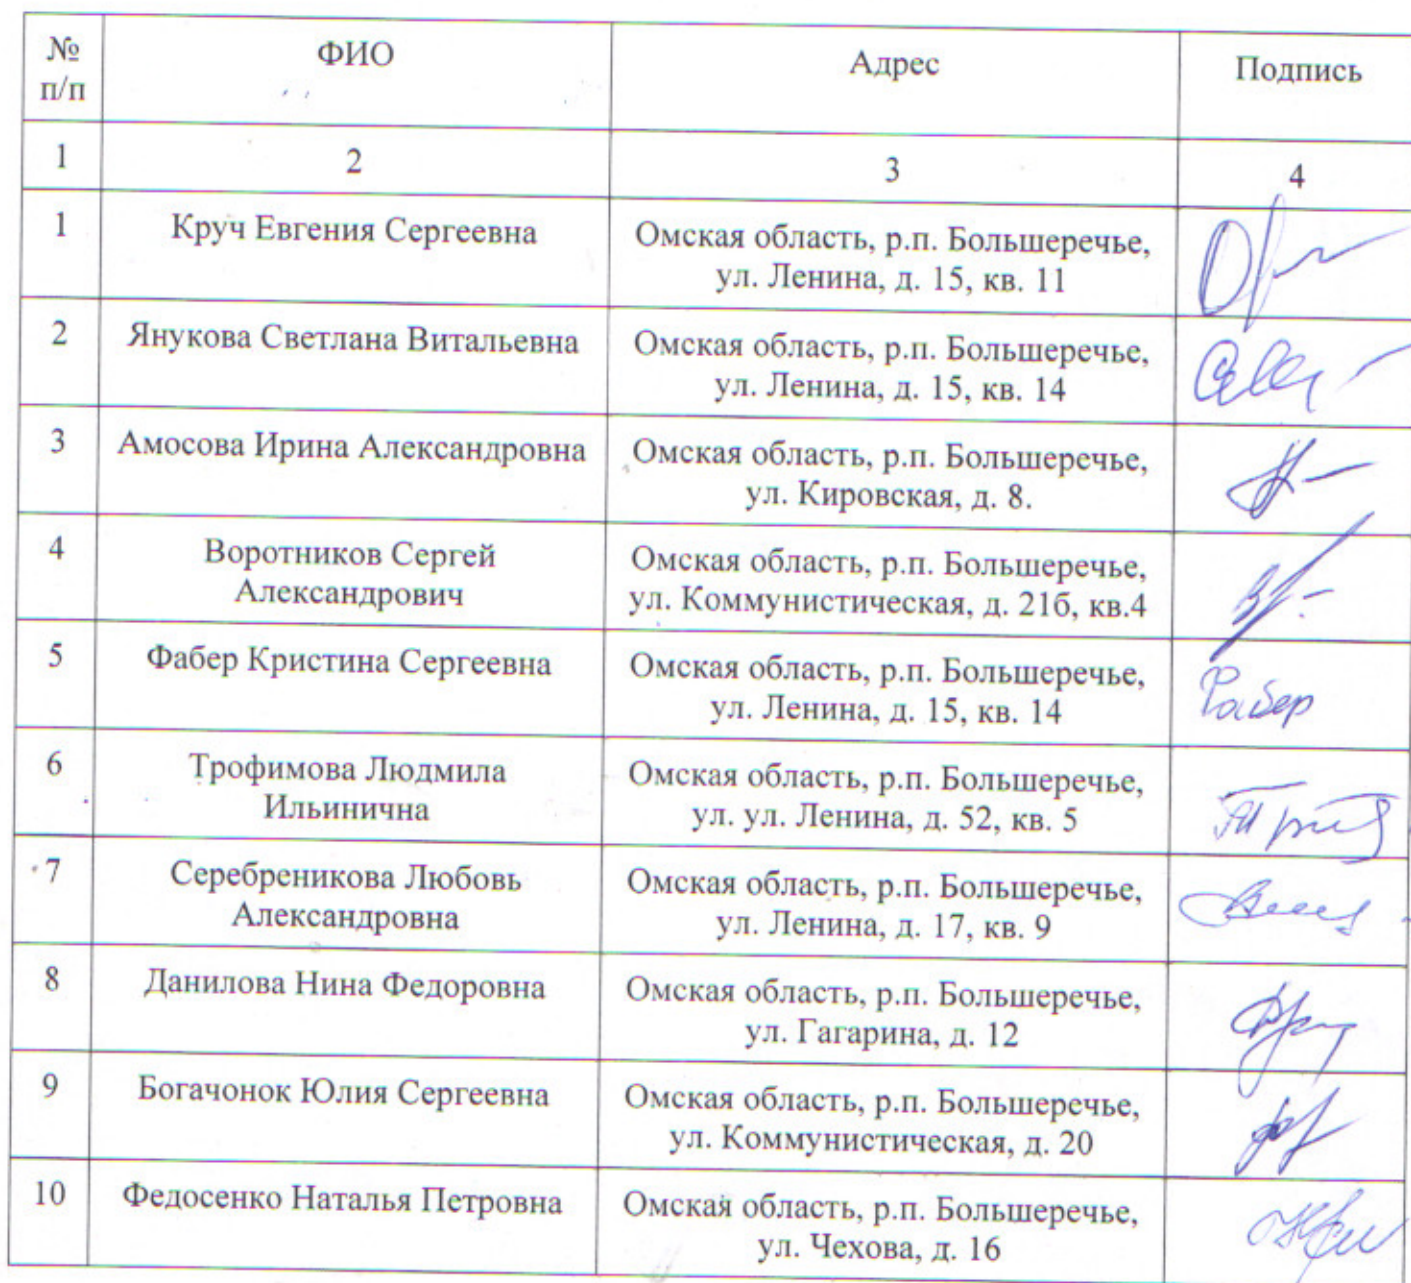 № п/п ФИО Адрес Подпись
1 2 3 4
1 Круч Евгения Сергеевна Омская область, р.п. Большеречье,
ул. Ленина, д. 15, кв. 11
2 Янукова Светлана Витальевна Омская область, р.п. Большеречье,
ул. Ленина, д. 15, кв. 14
3 Амосова Ирина Александровна Омская область, р.п. Большеречье,
ул. Кировская, д. 8.
4 Воротников Сергей Омская область, р.п. Большеречье,
Александрович ул. Коммунистическая, д. 21б, кв.4
5 Фабер Кристина Сергеевна Омская область, р.п. Большеречье, Фабер
ул. Ленина, д. 15, кв. 14
6 Трофимова Людмила Омская область, р.п. Большеречье,
Ильинична ул. ул. Ленина, д. 52, кв. 5
7 Серебреникова Любовь Омская область, р.п. Большеречье,
Александровна ул. Ленина, д. 17, кв. 9
8 Данилова Нина Федоровна Омская область, р.п. Большеречье,
ул. Гагарина, д. 12
9 Богачонок Юлия Сергеевна Омская область, р.п. Большеречье,
ул. Коммунистическая, д. 20
10 Федосенко Наталья Петровна Омская область, р.п. Большеречье,
ул. Чехова, д. 16